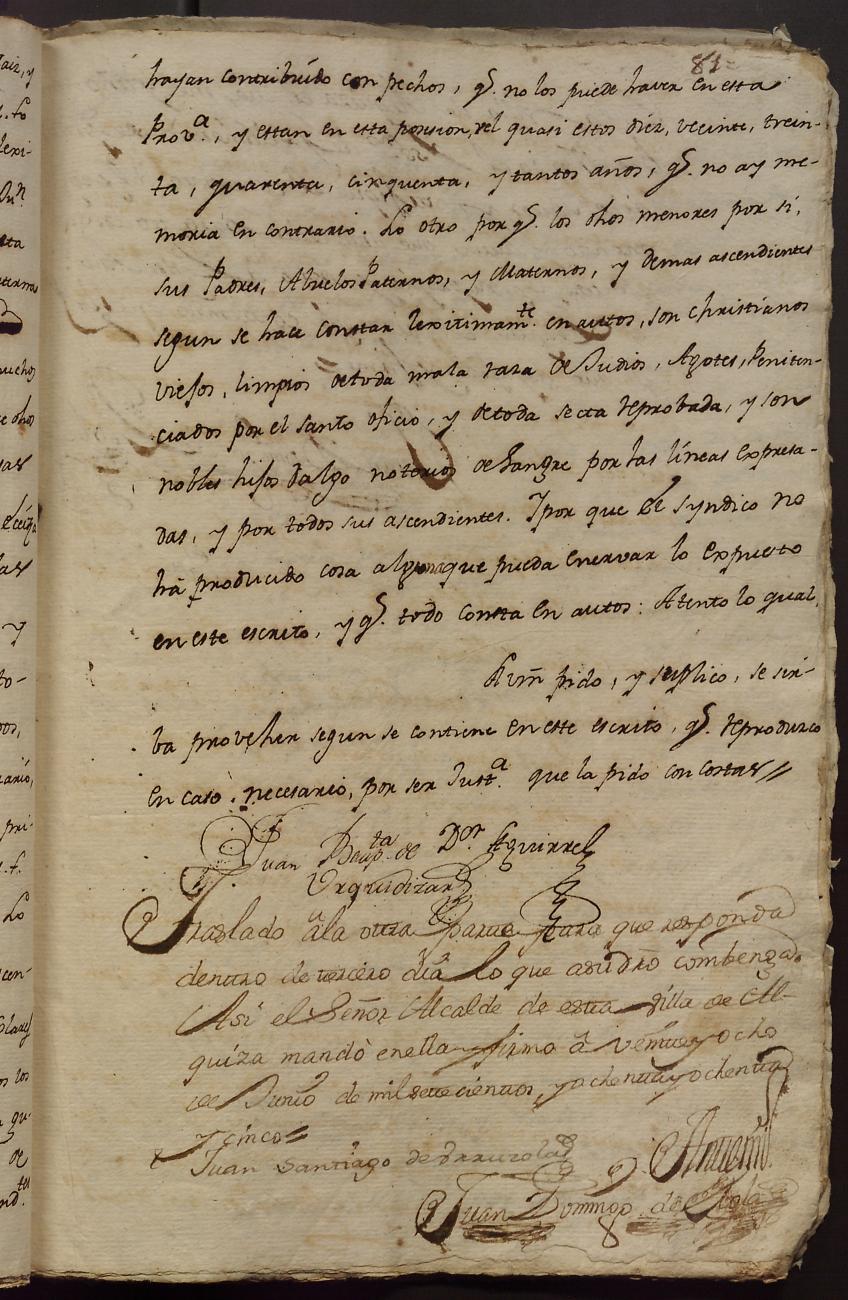 81
hayan contribuído con pechos, q.e no los puede haver en esta
Prov.a, y estan en esta posesion, vel quasi estos diez, veeinte, trein-
ta, quarenta, cinquenta, y tantos años, q.e no ay me-
moria en contrario. Lo otro por q.e los dhos menores por sí,
sus Padres, Abuelos Paternos, y Maternos, y demas ascendientes
segun se hace constar lexitimam.te en autos, son christianos
viejos, limpios de toda mala raza de Judios, Agotes, Peniten-
ciados por el santo oficio, y de toda secta reprobada, y son
nobles hijos dalgo notorios de sangre por las líneas expresa-
das, y por todos sus ascendientes. Y por que el syndico no
há producido cosa alguna que pueda enervar lo expuesto
en este escrito, y q.e todo consta en autos: Atento lo qual,
A vm pido, y suplico, se sir-
ba proveher segun se contiene en este escrito, q.e reproduzco
en caso necesario, por ser Just.a que la pido con costas
Juan Baup.ta de D.or Eguirrel
Urquidizar
Traslado à la otra Parte para que responda
dentro de tercero dia lo que asudrõ combenga.
Asi el Señor Alcalde de esta villa de Al-
quiza mandò en ella y firmo â veinte y ocho
de Junio de mil sete cientos, y ochenta y ochenta
y cinco
Juan Santiago de
Antemi
Juan Domingo de